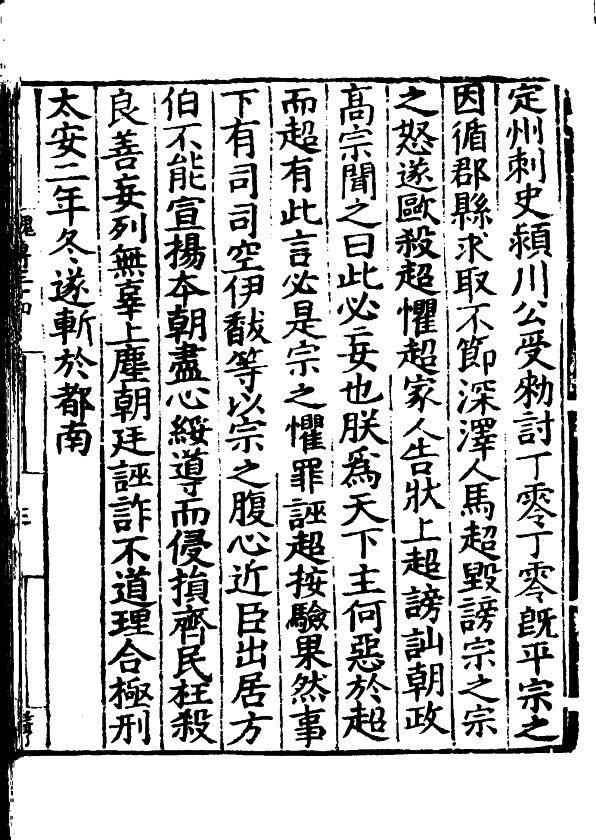 定州刺史潁川公受勑討丁零丁零旣平宗之
因循郡縣求取不節深澤人馬超毀謗宗之宗
之怒遂毆殺超懼超家人告狀上超謗訕朝政
高宗聞之曰此必妄也朕爲天下主何惡於超
而超有此言必是宗之懼罪誣超按驗果然事
下有司司空伊馛等以宗之腹心近臣出居方
伯不能宣揚本朝盡心綏導而侵損齊民枉殺
良善妄列無辜上塵朝廷誣詐不道理合極刑
太安二年冬遂斬於都南